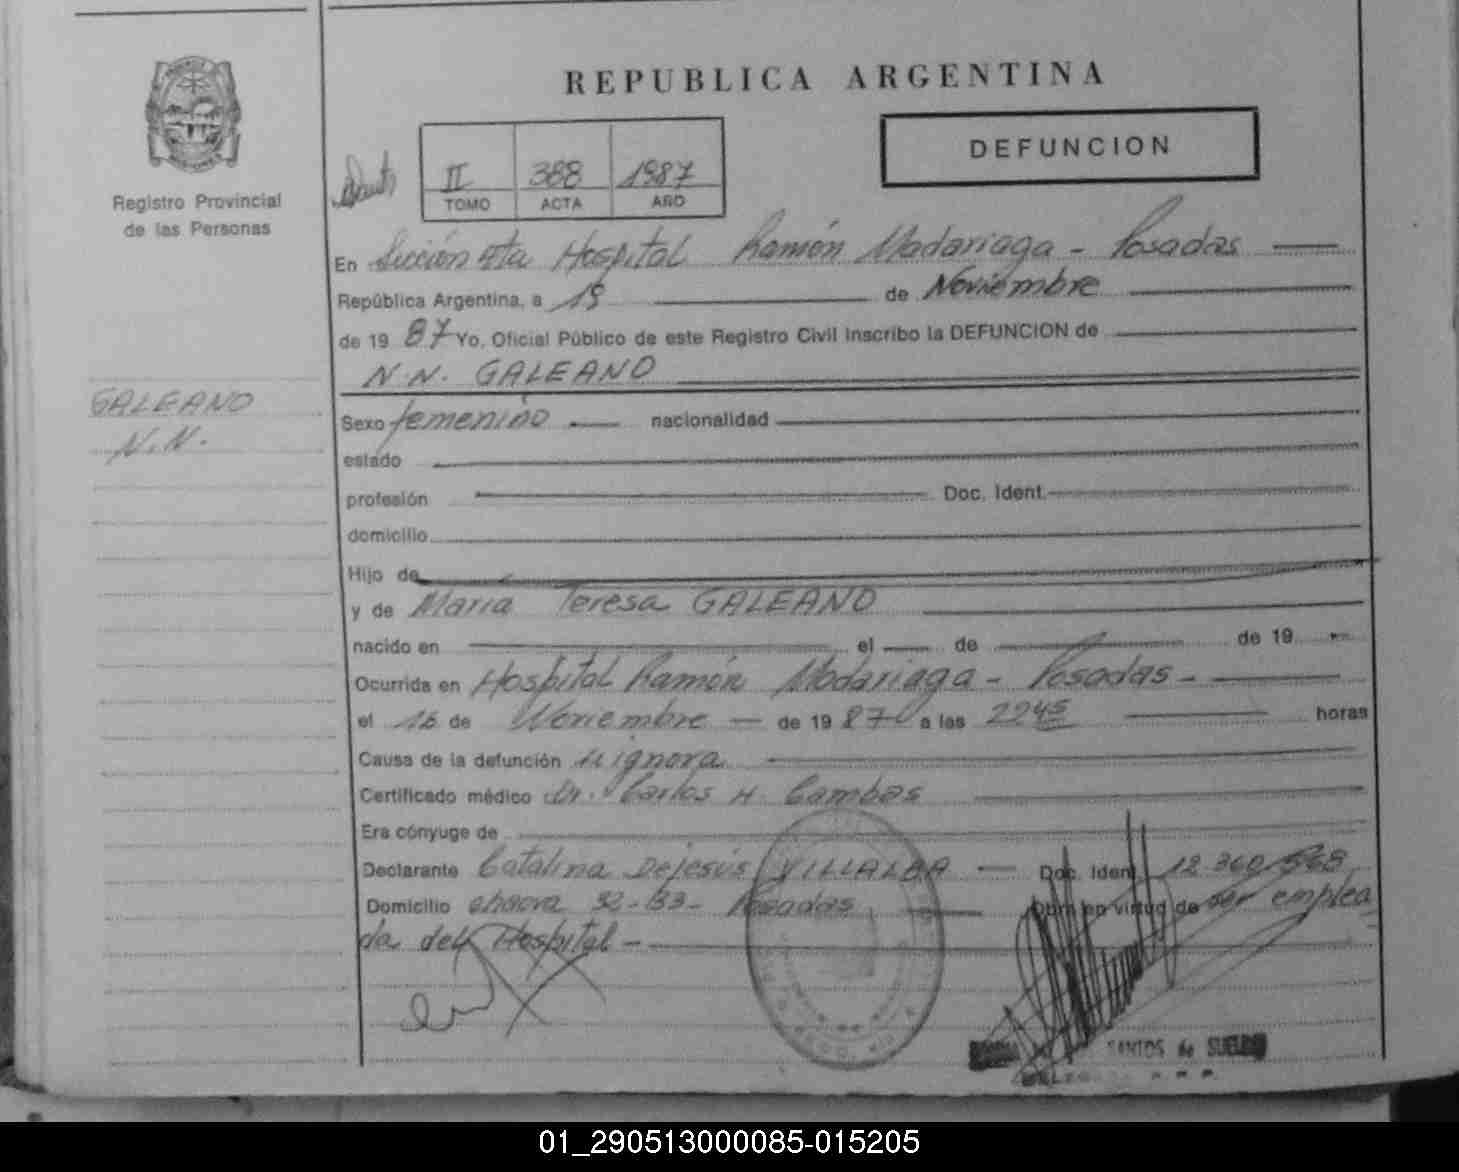 REPUBLICA ARGENTINA
DEFUNCION
II 388 1987
TOMO ACTA AÑO
Registro Provincial
de las Personas
En Sección 4ta Hospital Ramón Madariaga - Posadas
República Argentina, a 19 de Noviembre
de 19 87 Yo, Oficial Público de este Registro Civil Inscribo la DEFUNCION de
N.N. GALEANO
GALEANO
N.N.
Sexo femenino nacionalidad
estado
profesión Doc. Ident.
domicilio
Hijo de
y de Maria Teresa GALEANO
nacido en el de de 19
Ocurrida en Hospital Ramón Madariaga - Posadas -
el 16 de Noviembre de 19 87 a las 2245 horas
Causa de la defunción se ignora
Certificado médico Dr. Carlos H. Cambas
Era cónyuge de
Declarante Catalina Dejesús VILLALBA Doc. Ident. 12.360.568
Domicilio chacra 32-33- Posadas Obra en virtud de ser emplea
da del Hospital -
SANTOS de SUELDO
01_290513000085-015205